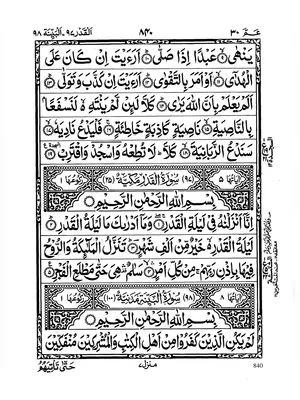 عـم ٣٠ ٨٤٠ القدر ٩٧، البينة ٩٨
يَنْهٰى ۙ عَبْدًا اِذَا صَلّٰى ؕ اَرَءَيْتَ اِنْ كَانَ عَلَى
الْهُدٰٓى ۙ اَوْ اَمَرَ بِالتَّقْوٰى ؕ اَرَءَيْتَ اِنْ كَذَّبَ وَتَوَلّٰى ؕ
اَلَمْ يَعْلَمْ بِاَنَّ اللّٰهَ يَرٰى ؕ كَلَّا لَئِنْ لَّمْ يَنْتَهِ ۙ لَنَسْفَعًۢا
بِالنَّاصِيَةِ ۙ نَاصِيَةٍ كَاذِبَةٍ خَاطِئَةٍ ۚ فَلْيَدْعُ نَادِيَهٗ ۙ
سَنَدْعُ الزَّبَانِيَةَ ۙ كَلَّا ؕ لَا تُطِعْهُ وَاسْجُدْ وَاقْتَرِبْ
اٰيَاتُهَا ٥ (٩٧) سُوْرَةُ الْقَدْرِ مَكِّيَّةٌ (٢٥) رُكُوْعُهَا ١
بِسْمِ اللّٰهِ الرَّحْمٰنِ الرَّحِيْمِ
اِنَّآ اَنْزَلْنٰهُ فِيْ لَيْلَةِ الْقَدْرِ ۚ وَمَآ اَدْرٰىكَ مَا لَيْلَةُ الْقَدْرِ ؕ
لَيْلَةُ الْقَدْرِ خَيْرٌ مِّنْ اَلْفِ شَهْرٍ ؕ تَنَزَّلُ الْمَلٰٓئِكَةُ وَالرُّوْحُ
فِيْهَا بِاِذْنِ رَبِّهِمْ ۚ مِنْ كُلِّ اَمْرٍ ۙ سَلٰمٌ هِيَ حَتّٰى مَطْلَعِ الْفَجْرِ
اٰيَاتُهَا ٨ (٩٨) سُوْرَةُ الْبَيِّنَةِ مَدَنِيَّةٌ (١٠٠) رُكُوْعُهَا ١
بِسْمِ اللّٰهِ الرَّحْمٰنِ الرَّحِيْمِ
لَمْ يَكُنِ الَّذِيْنَ كَفَرُوْا مِنْ اَهْلِ الْكِتٰبِ وَالْمُشْرِكِيْنَ مُنْفَكِّيْنَ
حَتّٰى تَاْتِيَهُمُ
منزل ٧
840